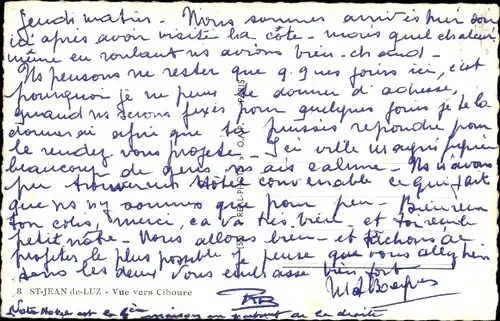 Jeudi matin - Nous sommes arrivés hier soir
ici après avoir visité la côte - mais quel chaleur
même en roulant ns avions bien chaud -
Ns pensons ne rester que q.ques jours ici, c'est
pourquoi je ne peux te donner d'adresse,
quand ns serons fixés pour quelques jours je te la
donnerai afin que tu puisses répondre pour
le rendez vous projeté - Ici ville magnifique
beaucoup de gens mais calme - Ns n'avons
pu trouver un hôtel convenable ce qui fait
que ns n'y sommes que pour peu - Bien reçu
ton colis, merci, ça va très bien - et toi reçu le
petit nôtre - Nous allons bien - et tâchons de
profiter le plus possible je pense que vous allez bien
tous les deux vous embrasse bien fort
8 ST-JEAN de-LUZ - Vue vers Ciboure
Notre Hôtel est la maison en partant de la droite